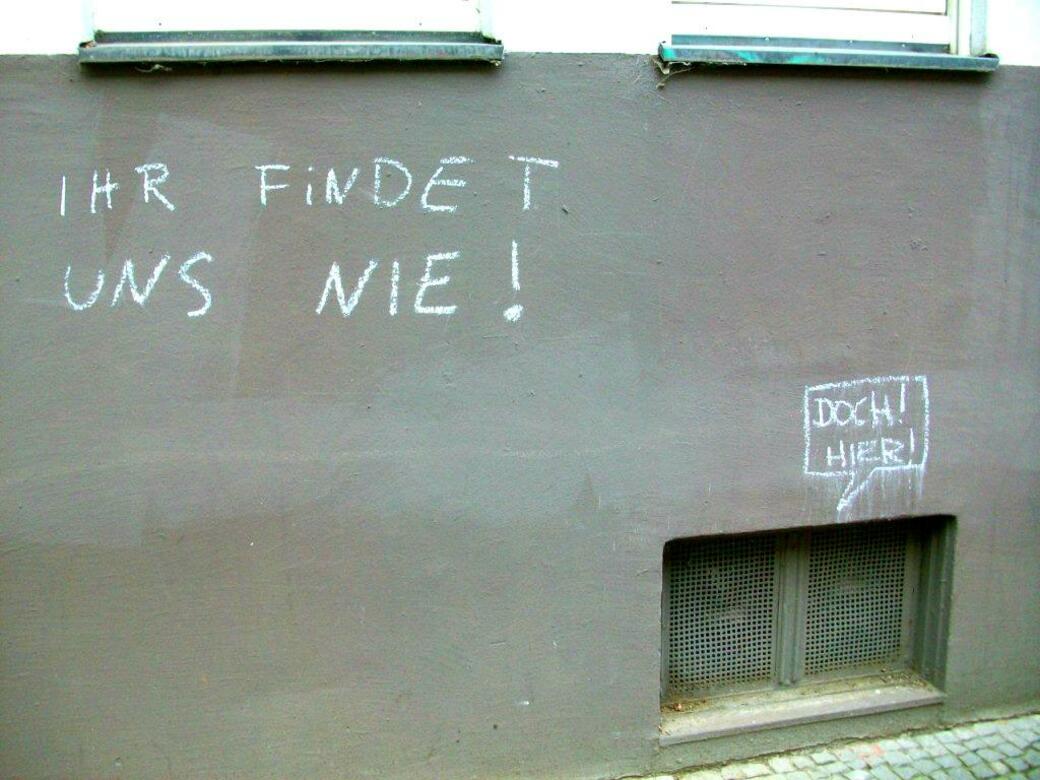 IHR FiNDET
UNS NIE!
DOCH!
HIER!